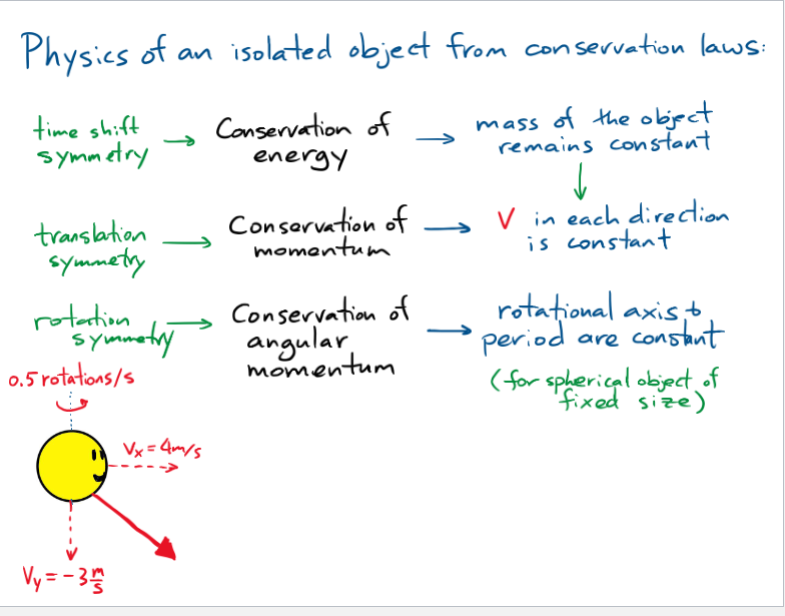 Physics of an isolated object from conservation laws:
time shift symmetry → Conservation of energy → mass of the object remains constant
↓
translation symmetry → Conservation of momentum → V in each direction is constant
rotation symmetry → Conservation of angular momentum → rotational axis & period are constant
(for spherical object of fixed size)
0.5 rotations/s
Vx = 4m/s
Vy = -3 m/s